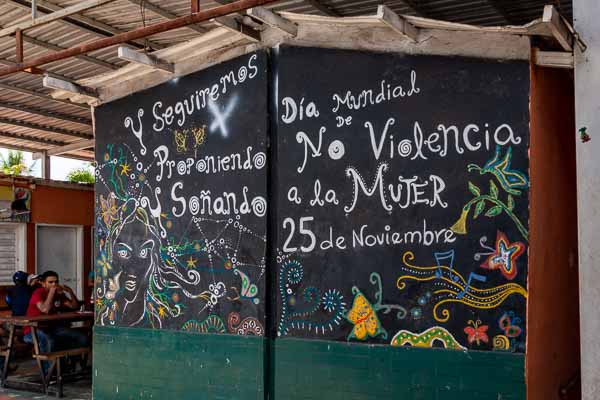 Y Seguiremos
X
Proponiendo
Y Soñando
Día Mundial
de
No Violencia
a la Mujer
25 de Noviembre